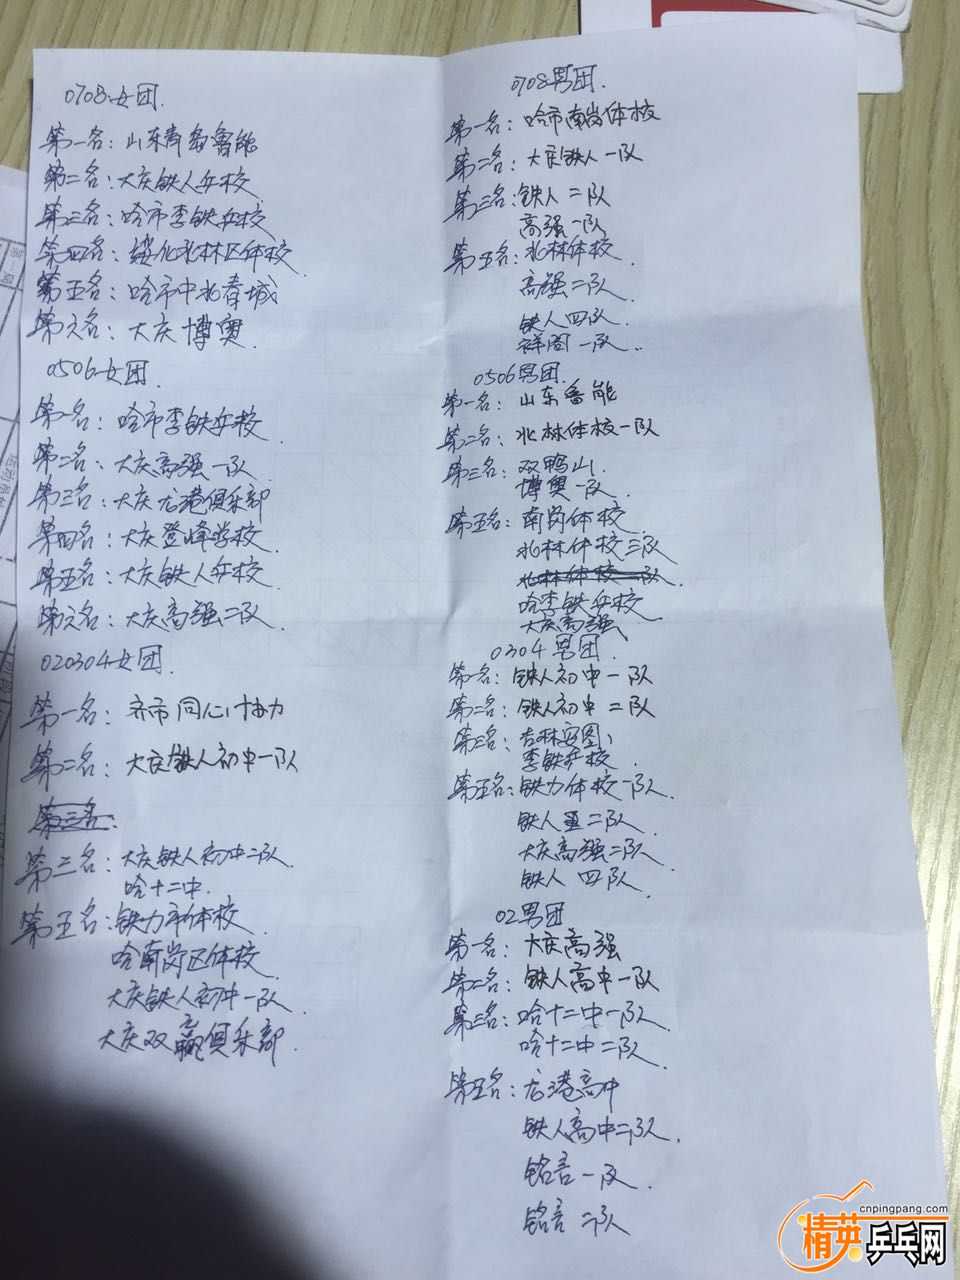 0708女团.
第一名：山东青岛鲁能
第二名：大庆铁人乒校.
第三名：哈市李铁乒校.
第四名：绥化北林区体校.
第五名：哈市中北春城
第六名：大庆博奥.
0506女团.
第一名：哈市李铁乒校.
第二名：大庆高强一队.
第三名：大庆龙港俱乐部
第四名：大庆登峰学校.
第五名：大庆铁人乒校.
第六名：大庆高强二队.
020304女团.
第一名：齐市同心协力
第二名：大庆铁人初中一队
第三名.
第三名：大庆铁人初中二队.
哈十二中.
第五名：铁力市体校.
哈南岗区体校.
大庆铁人初中一队.
大庆双赢俱乐部.
0708男团.
第一名：哈市南岗体校
第二名：大庆铁人一队
第三名：铁人二队
高强一队
第五名：北林体校.
高强二队.
铁人四队.
祥阁一队..
0506男团.
第一名：山东鲁能
第二名：北林体校一队
第三名：双鸭山.
博奥一队.
第五名：南岗体校.
北林体校三队
北林体校一队.
哈李铁乒校
大庆高强
0304男团.
第一名：铁人初中一队
第二名：铁人初中二队
第三名：吉林安图、
李铁乒校.
第五名：铁力体校一队.
铁人二队.
大庆高强二队.
铁人四队.
02男团
第一名：大庆高强
第二名：铁人高中一队
第三名：哈十二中一队.
哈十二中二队.
第五名：龙港高中
铁人高中二队.
铭言一队.
铭言二队
cnpingpang.com
精英乒乓网